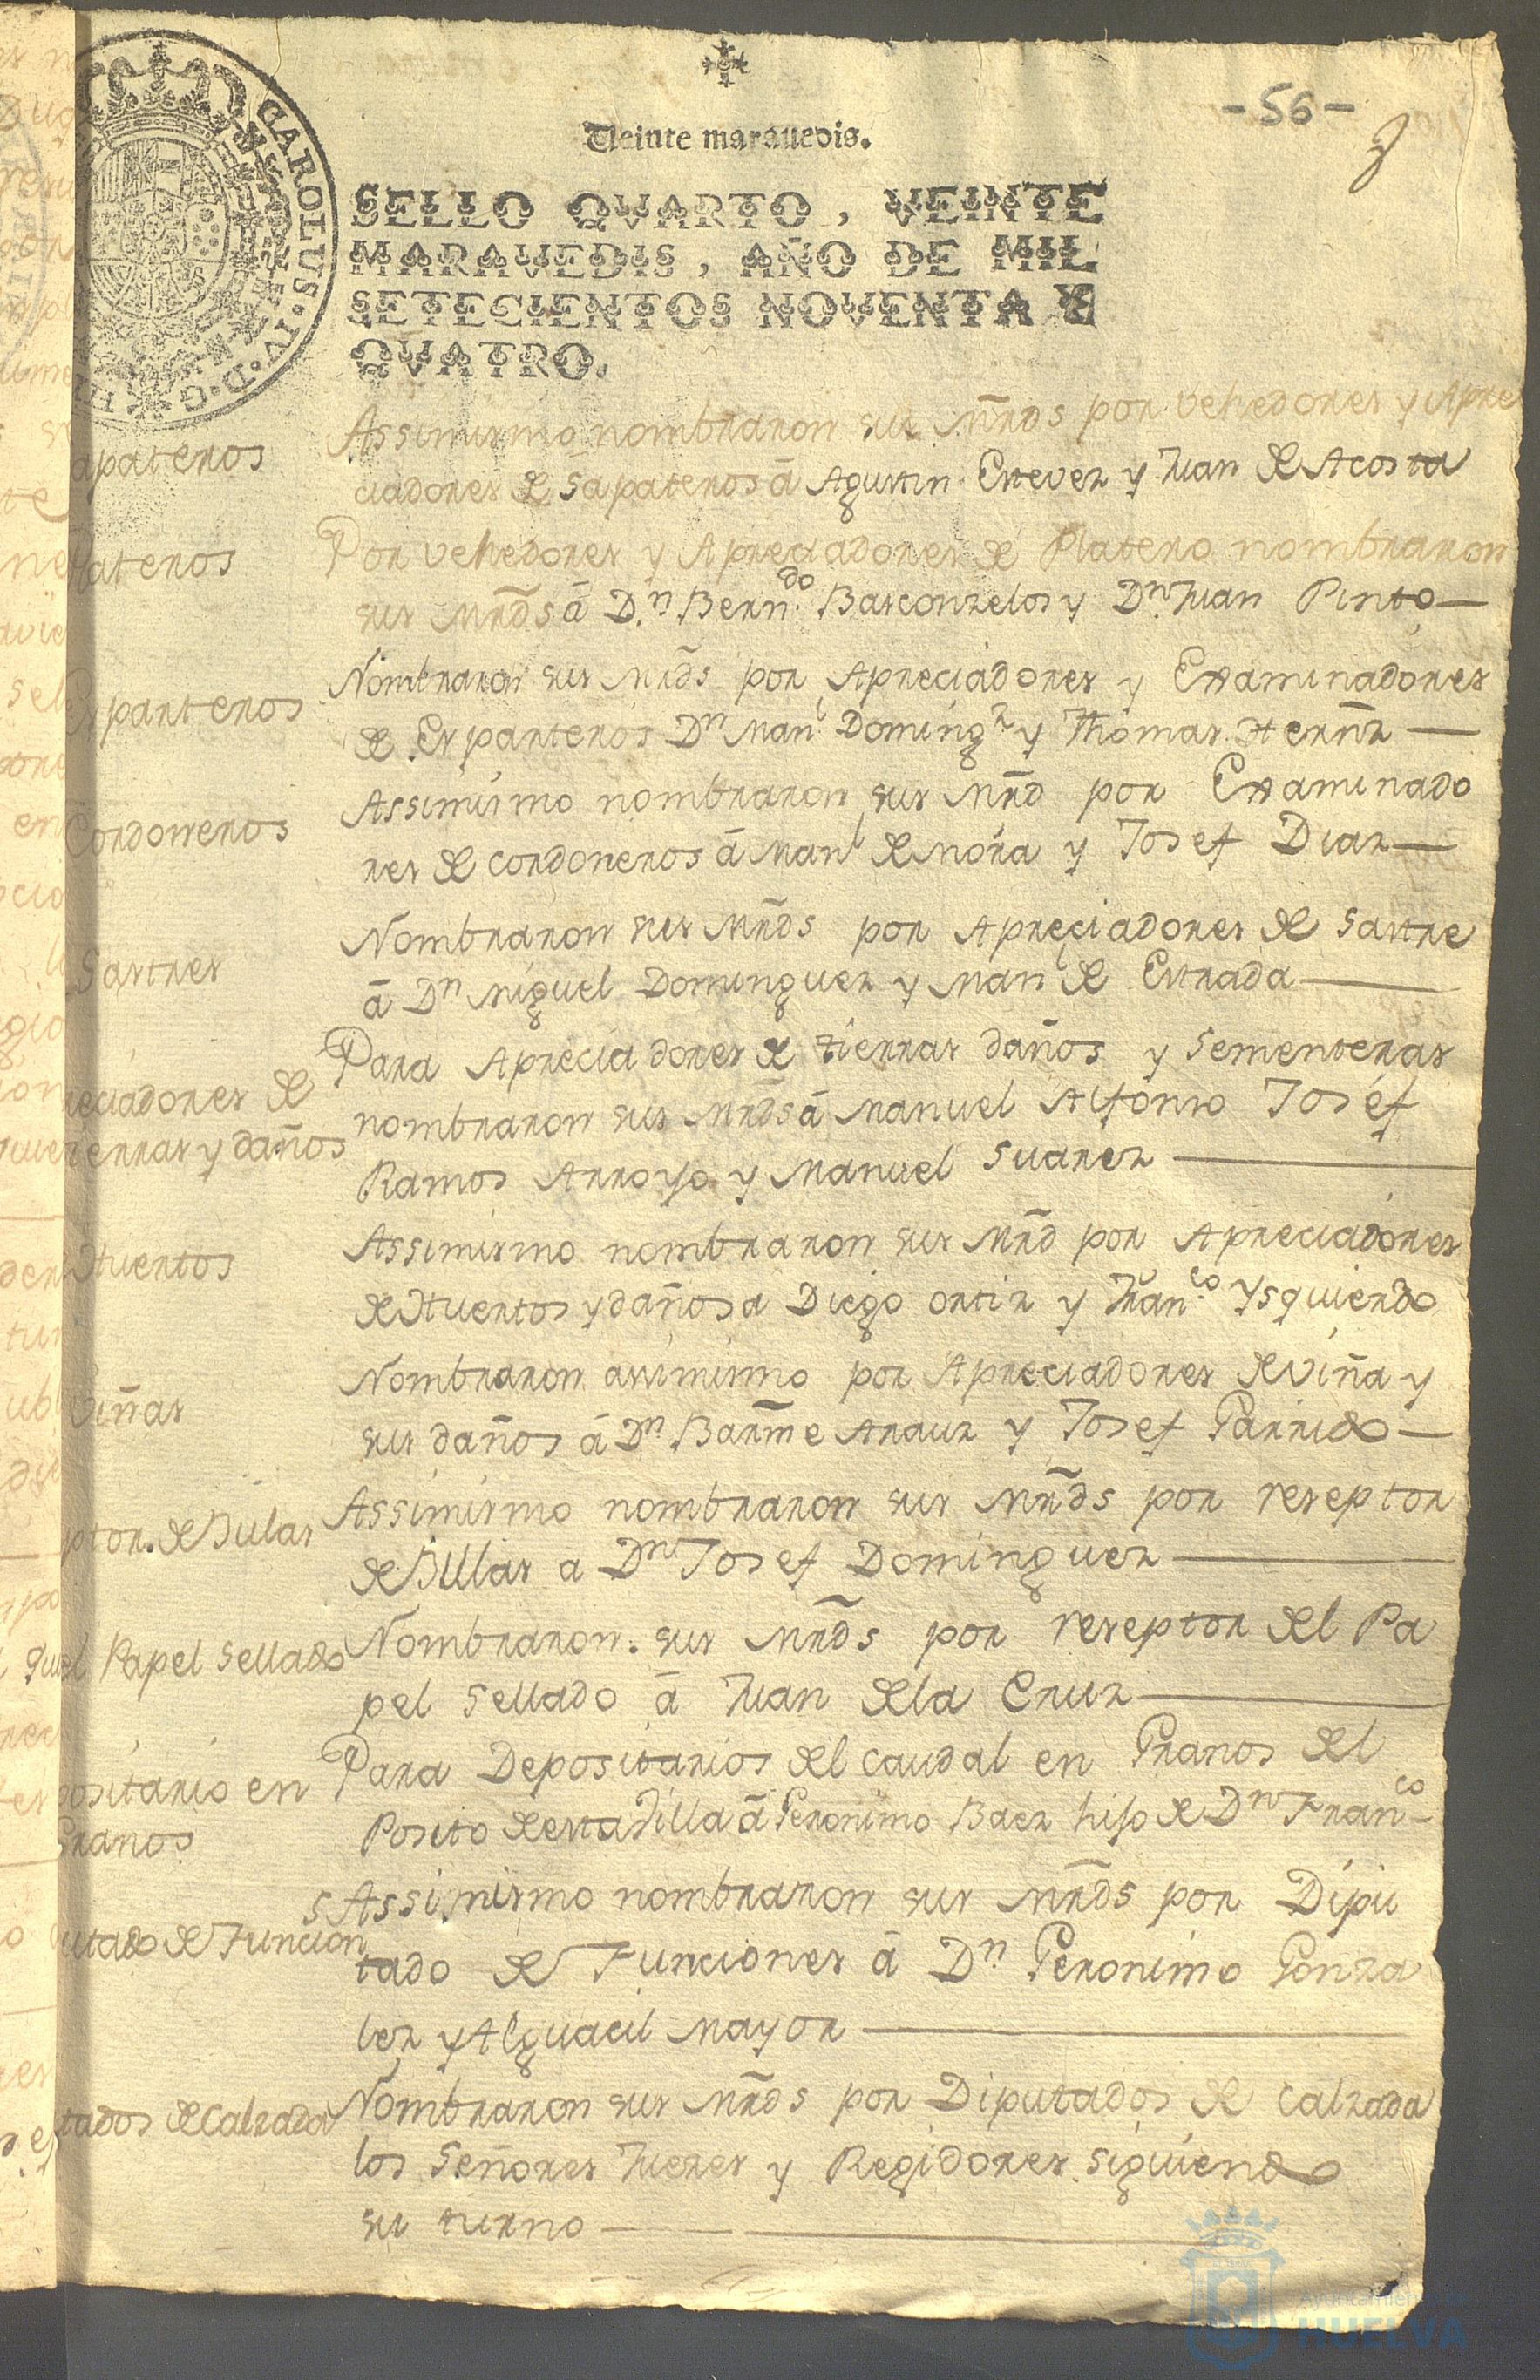 -56-
Veinte maravedis.
SELLO QVARTO, VEINTE
MARAVEDIS, AÑO DE MIL
SETECIENTOS NOVENTA Y
QVATRO.
CAROLUS · IV · D · G ·
apateros
Assimismo nombraron sus Mrds por vehedores y Apre
ciadores de Sapateros á Agustin Estevez y Juan de Acosta
Plateros
Por vehedores y Apreciadores de Platero nombraron
sus Mrds á Dn. Berndo. Basconzelos y Dn. Juan Pinto
Esparteros
Nombraron sus Mrds por Apreciadores y Examinadores
de Esparteros Dn Manl Domingz y Thomas Hernz
Cordoneros
Assimismo nombraron sus Mrd por Examinado
res de Cordoneros á Manl de Mora y Josef Diaz
Sastres
Nombraron sus Mrds por Apreciadores de Sastre
á Dn Miguel Dominguez y Manl de Estrada
reciadores de
tierras y daños
Para Apreciadores de tierras daños y Sementeras
nombraron sus Mrds á Manuel Alfonso Josef
Ramos Arroyo y Manuel Suarez
Huertos
Assimismo nombraron sus Mrd por Apreciadores
de Huertos y daños a Diego Ortiz y Franco. Ysquierdo
Viñas
Nombraron assimismo por Apreciadores de Viña y
sus daños á Dn Barme Arauz y Josef Garrido
ptor. de Bulas
Assimismo nombraron sus Mrds por reseptor
de Bulas a Dn Josef Dominguez
el Papel Sellado
Nombraron sus Mrds por reseptor del Pa
pel Sellado á Juan de la Cruz
positario en
Granos
Para Depositarios del caudal en Granos del
Posito de esta Villa á Geronimo Baez hijo de Dn Franco
utado de Funcion
Assimismo nombraron sus Mrds por Dipu
tado de Funciones á Dn Geronimo Gonza
lez y Alguacil Mayor
tados de Calzada
Nombraron sus Mrds por Diputados de Calzada
los Señores Jueces y Regidores siguiendo
su turno
Ayuntamiento de
HUELVA